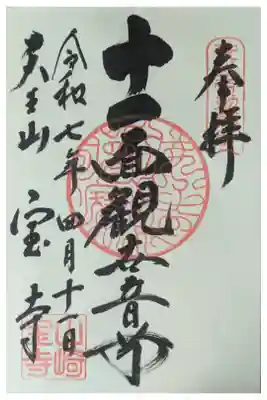 奉拝
十一面観世音
令和七年四月十一日
天王山
宝寺
山崎
宝寺